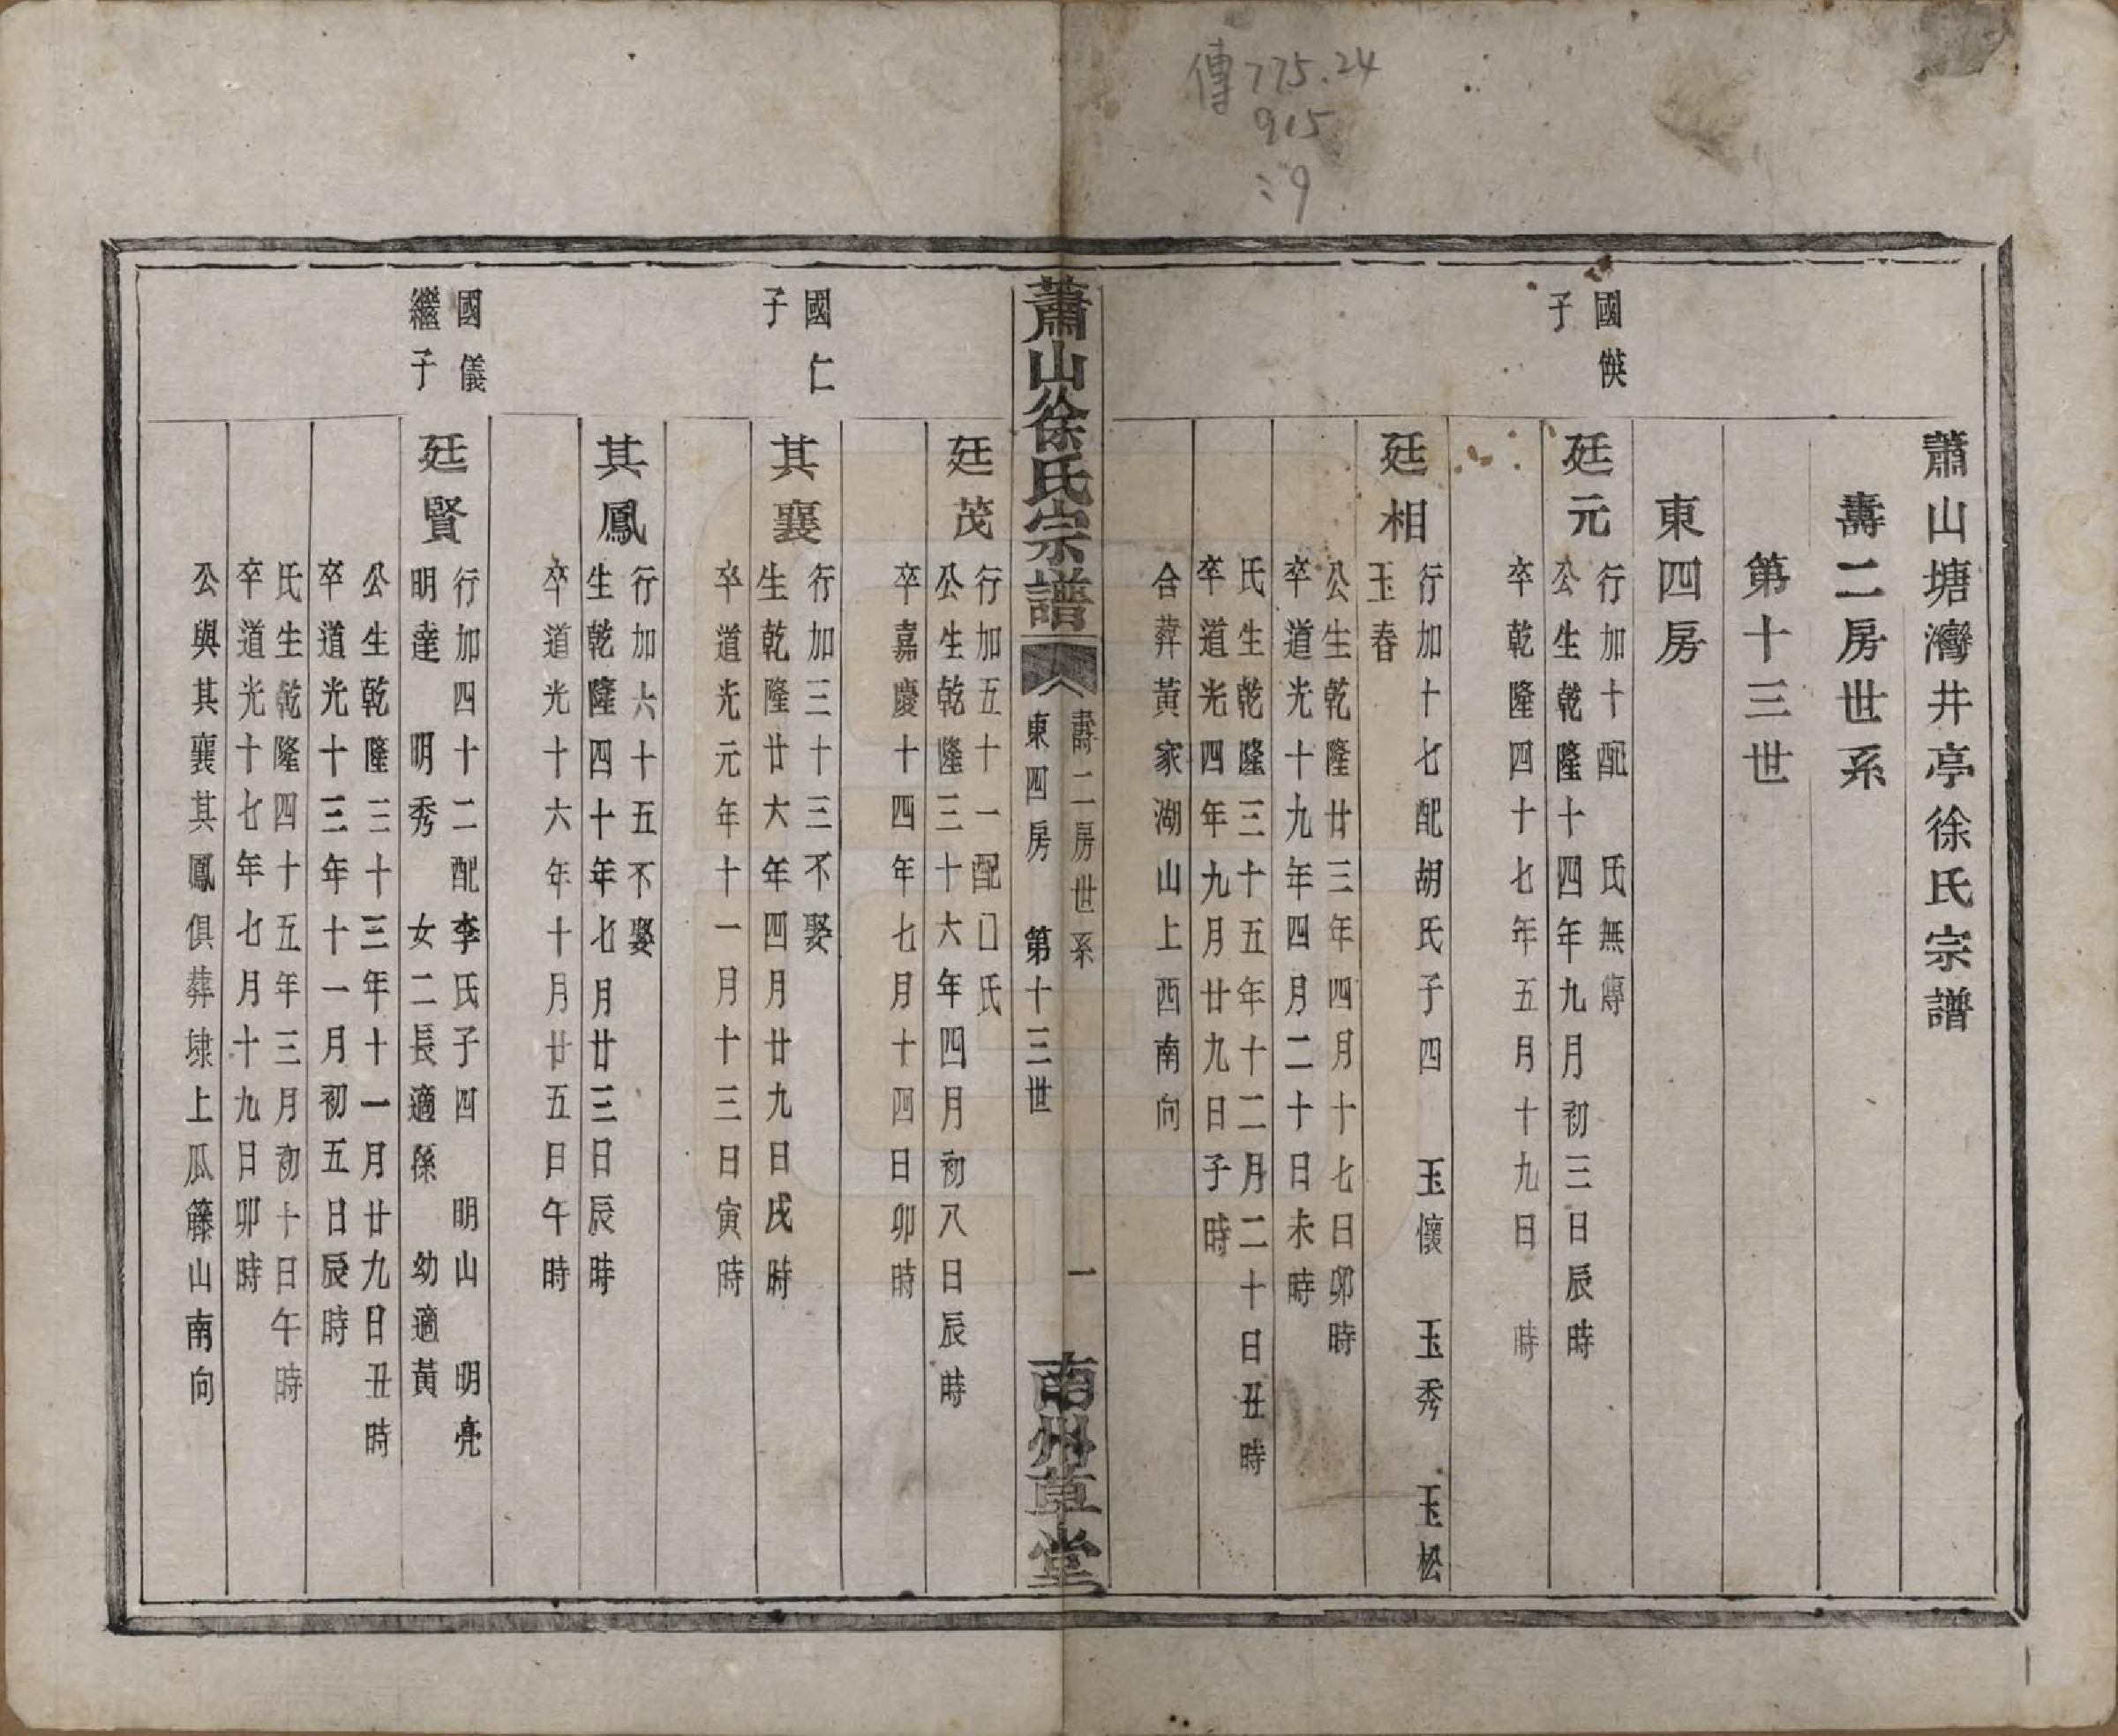 傳775.24
915
:9
蕭山塘灣井亭徐氏宗譜
壽二房世系
第十三世
東四房
國倛
子
廷元
行加十配　氏無傳
公生乾隆十四年九月初三日辰時
卒乾隆四十七年五月十九日　時
廷相
行加十七配胡氏子四　玉懷　玉秀　玉松
玉春
公生乾隆廿三年四月十七日卯時
卒道光十九年四月二十日未時
氏生乾隆三十五年十二月二十日丑時
卒道光四年九月廿九日子時
合葬黃家湖山上西南向
蕭山徐氏宗譜
壽二房世系　一
東四房　第十三世
南州草堂
國仁
子
廷茂
行加五十一配口氏
公生乾隆三十六年四月初八日辰時
卒嘉慶十四年七月十四日卯時
其襄
行加三十三不娶
生乾隆廿六年四月廿九日戌時
卒道光元年十一月十三日寅時
其鳳
行加六十五不娶
生乾隆四十年七月廿三日辰時
卒道光十六年十月廿五日午時
國儀
繼子
廷賢
行加四十二配李氏子四　明山　明亮
明達　明秀　女二長適孫　幼適黃
公生乾隆三十三年十一月廿九日丑時
卒道光十三年十一月初五日辰時
氏生乾隆四十五年三月初十日午時
卒道光十七年七月十九日卯時
公與其襄其鳳俱葬埭上瓜籐山南向